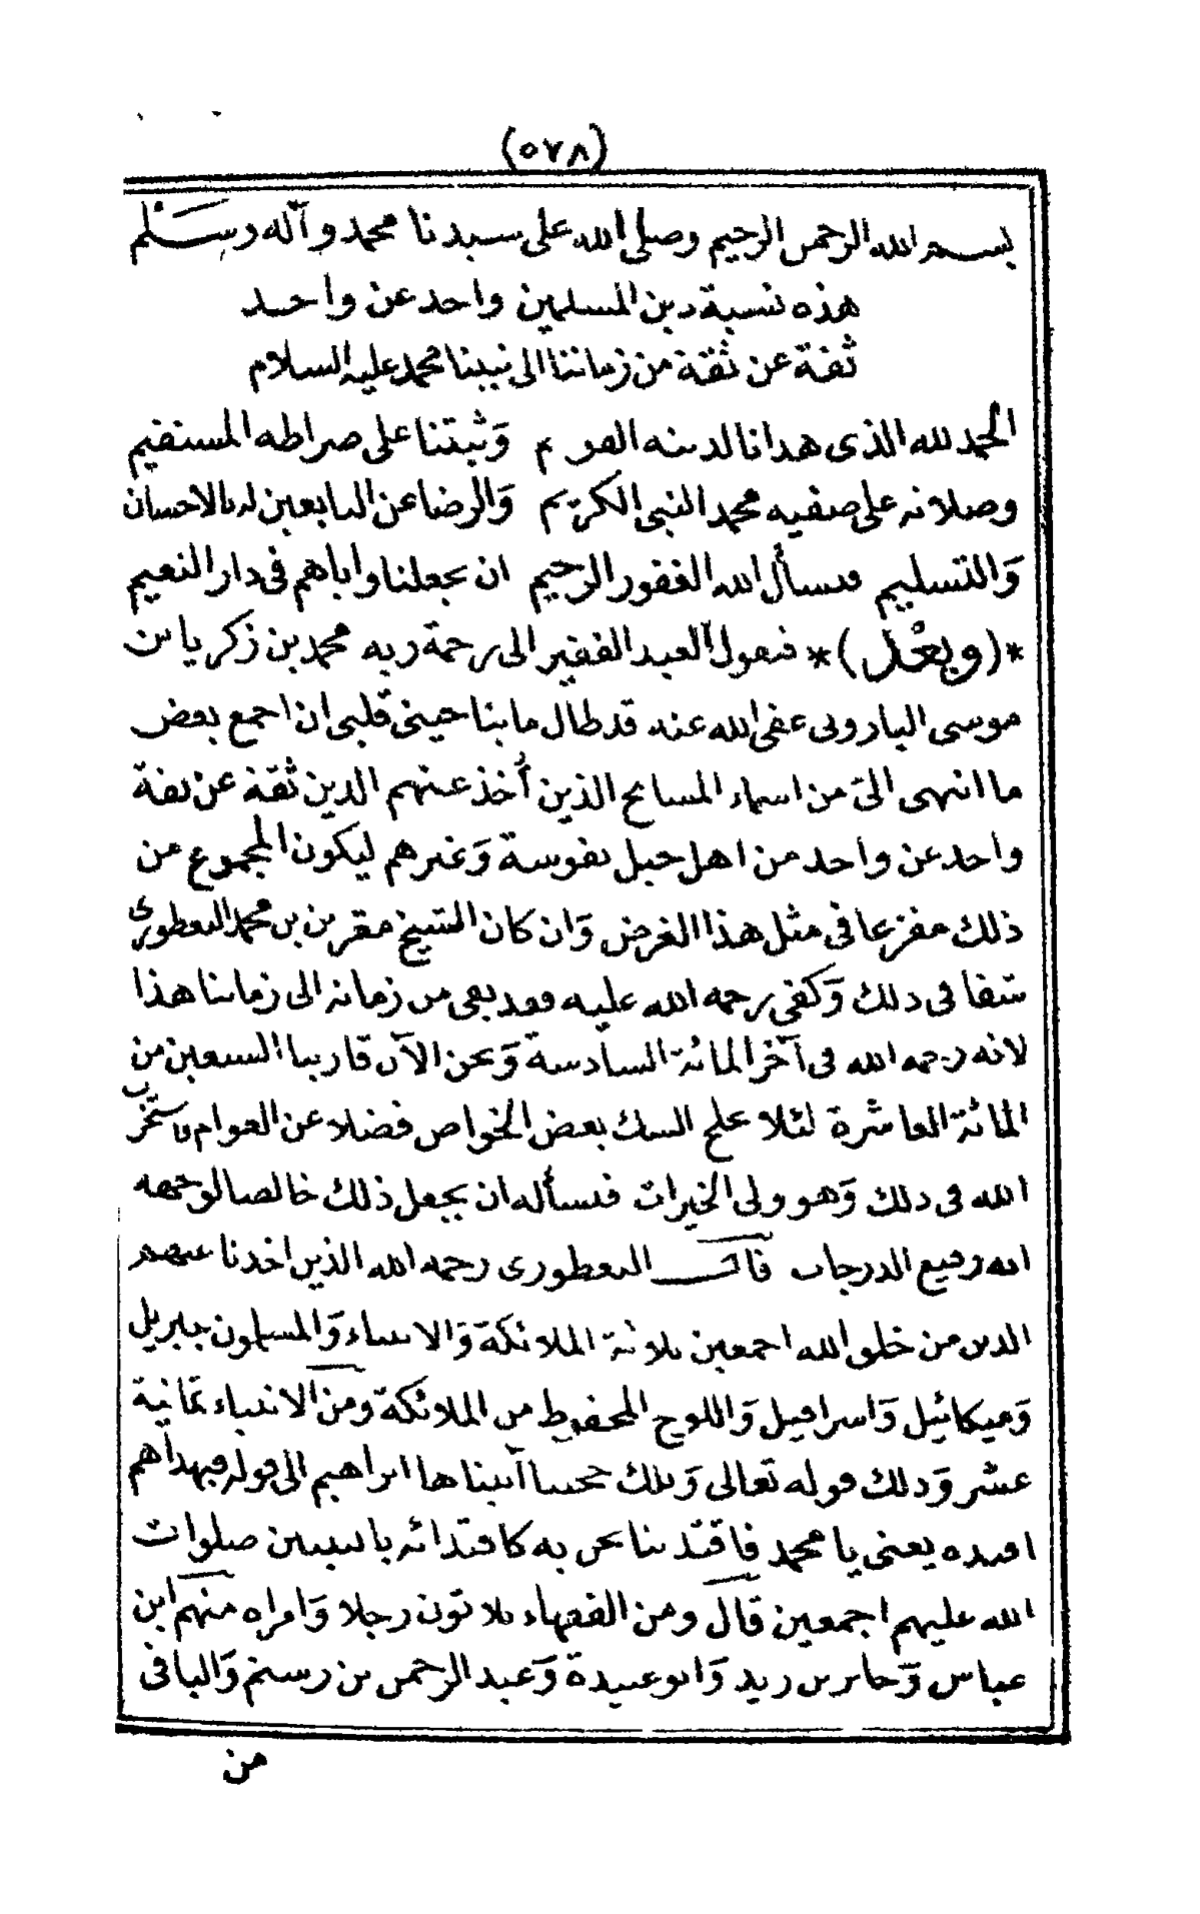 (٥٧٨)
بسم الله الرحمن الرحيم وصلى الله على سيدنا محمد وآله وسلم
هذه نسبة دين المسلمين واحد عن واحد
ثقة عن ثقة من زماننا الى نبينا محمد عليه السلام
الحمد لله الذى هدانا لدينه القويم وَثبتنا على صراطه المستقيم
وصلاته على صفيه محمد النبى الكريم وَالرضا عن التابعين له بالاحسان
وَالتسليم فنسأل الله الغفور الرحيم ان يجعلنا واياهم فى دار النعيم
*(وبعْد)* فيقول العبد الفقير الى رحمة ربه محمد بن زكرياء بن
موسى البارونى عفى الله عنه قد طال ما بنا حينى قلبى ان اجمع بعض
ما انتهى الىّ من اسماء المسايخ الذين أُخذ عنهم الدين ثقة عن ثقة
واحد عن واحد من اهل جبل نفوسة وَغيرهم ليكون المجموع من
ذلك مفزعا فى مثل هذا الغرض وَان كان الشيخ مقرين بن محمد البغطورى
شفا فى ذلك وَكفى رحمه الله عليه فقد بقى من زمانه الى زماننا هذا
لانه رحمه الله فى آخر المائة السادسة وَنحن الآن قاربنا السبعين من
المائة العاشرة لئلا علج الشك بعض الخواص فضلا عن العوام فاستخرت
الله فى ذلك وَهو ولى الخيرات فنسأله ان يجعل ذلك خالصا لوجهه
انه رفيع الدرجات قال البغطورى رحمه الله الذين اخذنا عنهم
الدين من خلق الله اجمعين ثلاثة الملائكة وَالانبياء وَالمسلمون جبريل
وَميكائيل وَاسرافيل وَاللوح المحفوظ من الملائكة ومن الانبياء ثمانية
عشر وَذلك قوله تعالى وَتلك حجتنا آتيناها ابراهيم الى قوله فبهداهم
اقتده يعنى يا محمد فاقتدينا نحن به كاقتدائه بالنبيين صلوات
الله عليهم اجمعين قال ومن الفقهاء ثلاثون رجلا وَامراه منهم ابن
عباس وَجابر بن زيد وَابو عبيدة وَعبد الرحمن بن رستم وَالباقى
من